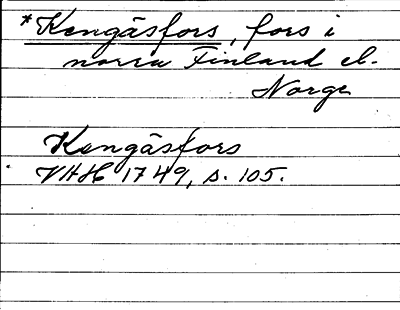 *Kengäsfors, fors i
norra Finland el.
Norge
Kengäsfors
VHH 1749, s. 105.